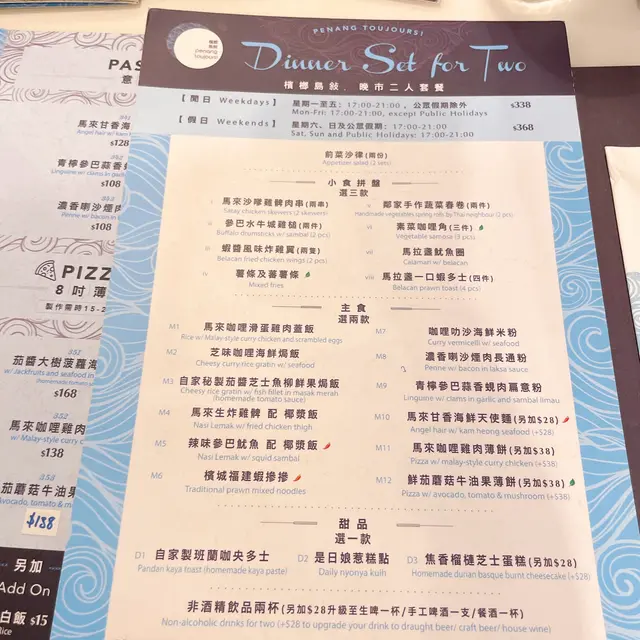 PENANG TOUJOURS!
檳榔島敍
penang
toujours
Dinner Set for Two
檳榔島敍．晚市二人套餐
【閒日 Weekdays】
星期一至五：17:00-21:00，公眾假期除外
Mon-Fri: 17:00-21:00, except Public Holidays
$338
【假日 Weekends】
星期六、日及公眾假期：17:00-21:00
Sat, Sun and Public Holidays: 17:00-21:00
$368
前菜沙律(兩份)
Appetizer salad (2 sets)
小食拼盤
選三款
i 馬來沙嗲雞髀肉串(兩串)
Satay chicken skewers (2 skewers)
ii 參巴水牛城雞槌(兩件)
Buffalo drumsticks w/ sambal (2 pcs)
iii 蝦醬風味炸雞翼(兩隻)
Belacan fried chicken wings (2 pcs)
iv 薯條及蕃薯條
Mixed fries
v 鄰家手作蔬菜春卷(兩件)
Handmade vegetables spring rolls by Thai neighbour (2 pcs)
vi 素菜咖哩角(三件)
Vegetable samosa (3 pcs)
vii 馬拉盞魷魚圈
Calamari w/ belacan
viii 馬拉盞一口蝦多士(四件)
Belacan prawn toast (4 pcs)
主食
選兩款
M1 馬來咖哩滑蛋雞肉蓋飯
Rice w/ Malay-style curry chicken and scrambled eggs
M2 芝味咖哩海鮮焗飯
Cheesy curry rice gratin w/ seafood
M3 自家秘製茄醬芝士魚柳鮮果焗飯
Cheesy rice gratin w/ fish fillet in masak merah
(homemade tomato sauce)
M4 馬來生炸雞髀 配 椰漿飯
Nasi Lemak w/ fried chicken thigh
M5 辣味參巴魷魚 配 椰漿飯
Nasi Lemak w/ squid sambal
M6 檳城福建蝦摻摻
Traditional prawn mixed noodles
M7 咖哩叻沙海鮮米粉
Curry vermicelli w/ seafood
M8 濃香喇沙煙肉長通粉
Penne w/ bacon in laksa sauce
M9 青檸參巴蒜香蜆肉扁意粉
Linguine w/ clams in garlic and sambal limau
M10 馬來甘香海鮮天使麵(另加$28)
Angel hair w/ kam heong seafood (+$28)
M11 馬來咖哩雞肉薄餅(另加$38)
Pizza w/ malay-style curry chicken (+$38)
M12 鮮茄蘑菇牛油果薄餅(另加$38)
Pizza w/ avocado, tomato & mushroom (+$38)
甜品
選一款
D1 自家製班蘭咖央多士
Pandan kaya toast (homemade kaya paste)
D2 是日娘惹糕點
Daily nyonya kuih
D3 焦香榴槤芝士蛋糕(另加$28)
Homemade durian basque burnt cheesecake (+$28)
非酒精飲品兩杯(另加$28升級至生啤一杯/手工啤酒一支/餐酒一杯)
Non-alcoholic drinks for two (+$28 to upgrade your drink to draught beer/ craft beer/ house wine)
PAS
意
馬來甘香海
Angel hair w/ kam
$128
352
青檸參巴蒜香
Linguine w/ clams in garlic
$108
352
濃香喇沙煙肉
Penne w/ bacon in
$108
PIZZ
8吋薄
製作需時15-2
352
茄醬大樹菠蘿海
w/ Jackfruits and seafood in
$168
352
馬來咖哩雞肉
w/ Malay-style curry c
$138
鮮茄蘑菇牛油果
Avocado, tomato & m
$138
另加
Add On
白飯 $15
Rice